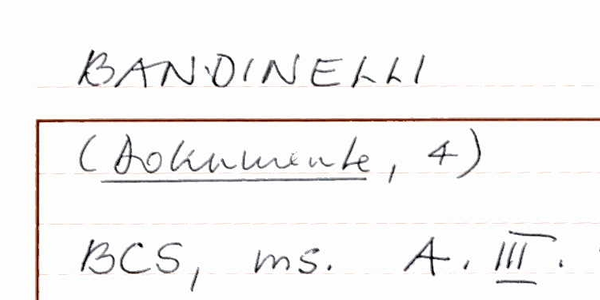 BANDINELLI
(Dokumente, 4)
BCS, ms. A. III.